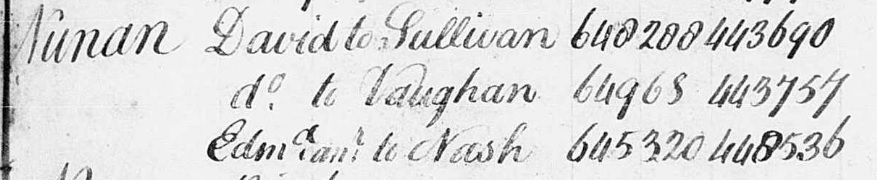 Nunan David to Sullivan 648 208 443690
do. to Vaughan 649 68 443757
Edmd. anr. to Nash 645 320 448536